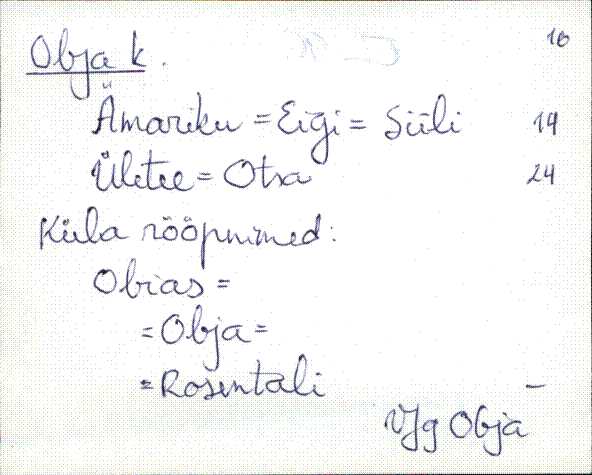 Obja k. 16
Ämariku = Eigi = Siili 14
Ületee = Otsa 24
Küla rööpnimed:
Obias =
= Obja =
= Rosentali –
VJg Obja